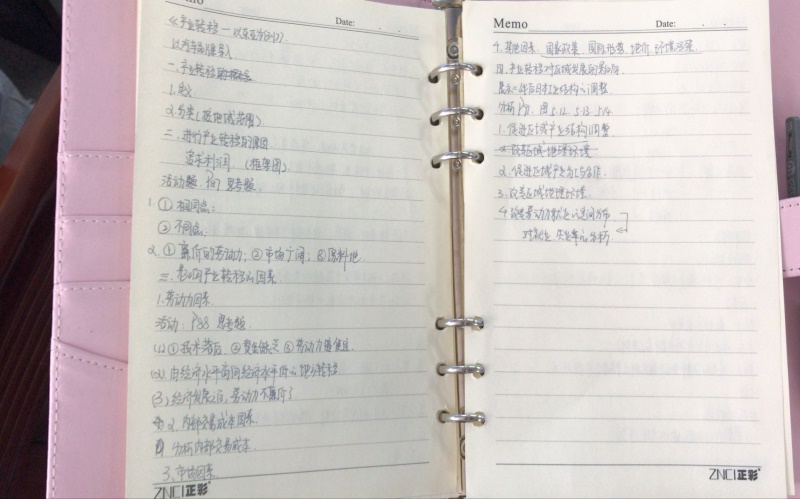 Memo Date:
产业转移—以东亚为例
一、产业转移的概念
1.定义
2.分类(按地域范围)
二、进行产业转移的原因
追求利润 (框架图)
活动题 P87 思考题.
1.①相同点:
②不同点:
2.①廉价的劳动力;②市场广阔;③原料地.
三.影响产业转移的因素.
1.劳动力因素.
活动:P88 思考题.
(1)①技术落后 ②资金缺乏 ③劳动力
(2)由经济水平高向经济水平低的地方转移
(3)经济发展之后,劳动力不廉价了
2.内部交易成本因素.
分析内部交易成本.
3.市场因素.
ZNCI正彩
Memo Date:
4.其他因素:国家政策、国际形势、地价、环境污染.
四.产业转移对区域发展的影响.
展示 日本产业结构的调整
分析 图5.12 5.13 5.14
1.促进区域产业结构调整
2.改变区域地理环境
2.促进区域产业分工与合作.
3.改变区域地理环境.
4.改变劳动力就业的空间分布
对就业、失业 分析.
ZNCI正彩